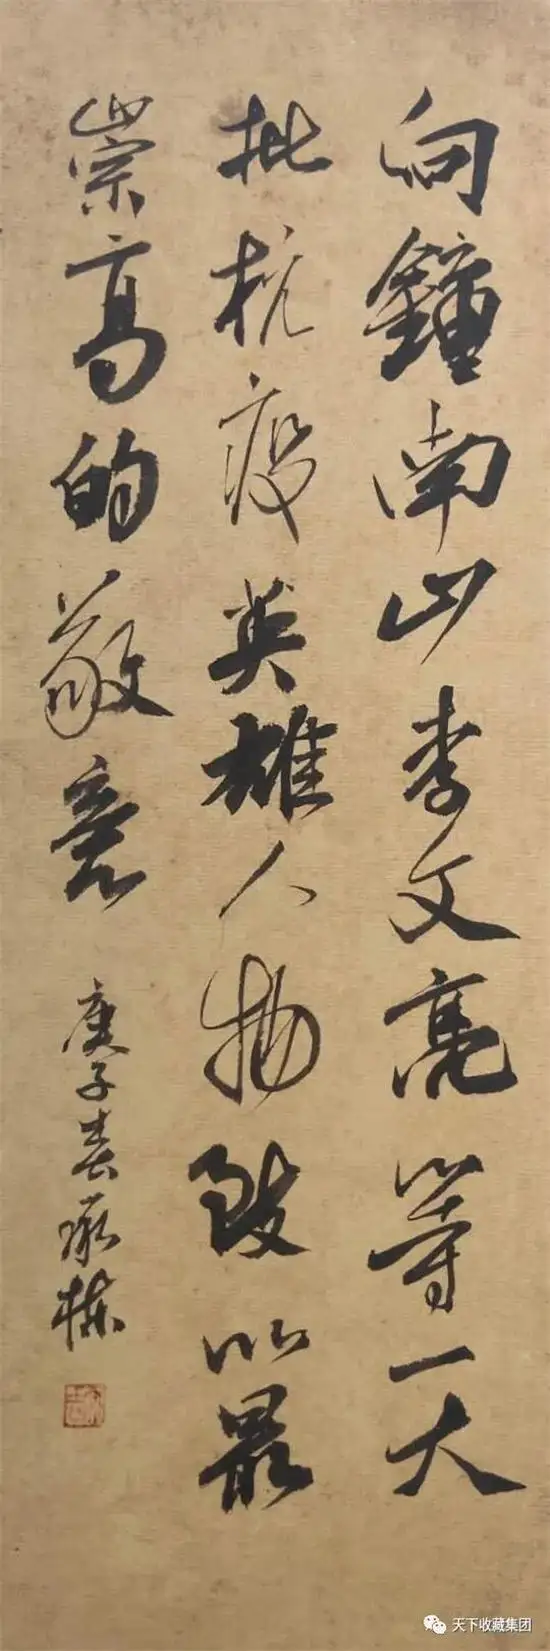 向鐘南山李文亮等一大
批抗疫英雄人物致以最
崇高的敬意
庚子春承栋
天下收藏集团